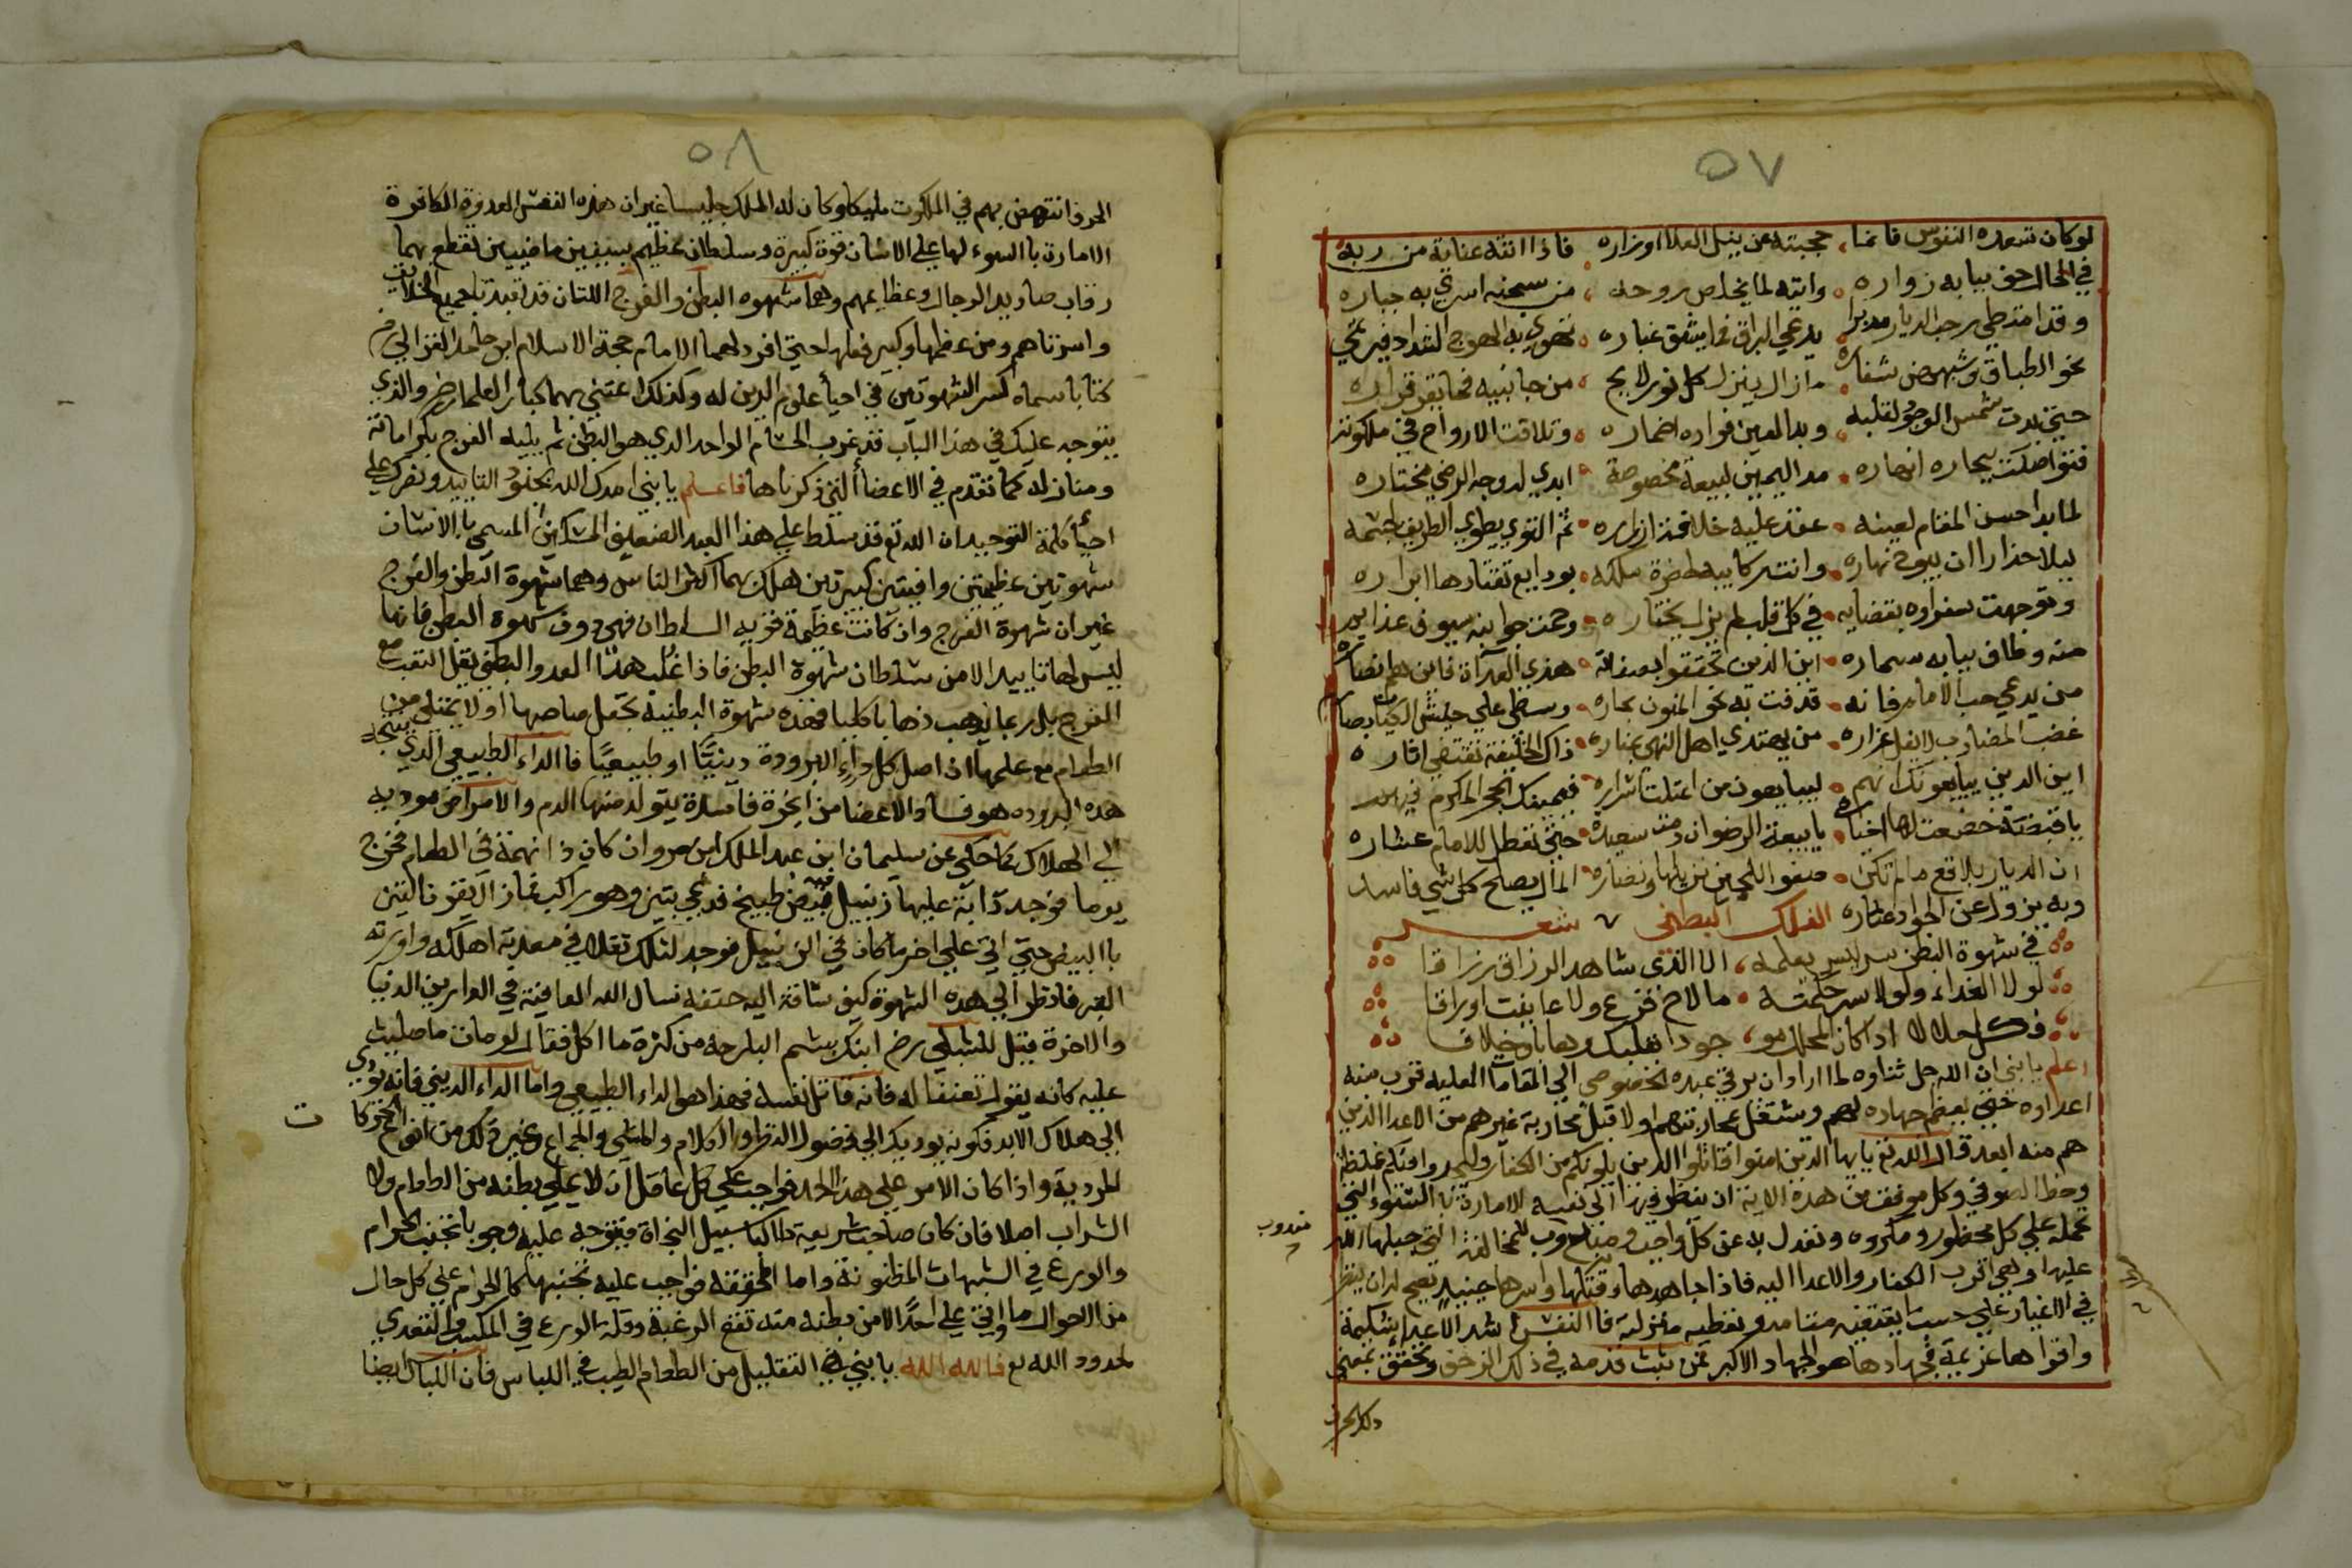 ٥٧
لو كان تسعده النفوس فانما ، حجبته عن نيل العلا اوزاره . فاذا اتته عناية من ربه
في الحال حف ببابه زواره . واتته لما يخلص روحه ، من سجنه اسري به جباره
وقد امتطي رحب الديار مدبرا . يدعي البراق فما يشق غباره . تهوي به الهوج الشداد فيرتمي
نحو الطباق وشهبهن شفاره . ما زال ينزل كل نور لايح ، من جانبيه فما يقر قراره
حتي بدت شمس الوجود لقلبه ، وبدا لعين فواده اضماره . وتلاقت الارواح في ملكوته
فتواصلت بحاره انهاره . مد اليمين لبيعة مخصوصة . ابدي له وجه الرضي مختاره
لما بدا حسن المقام لعينه . عقدت عليه خلافة ازراره . ثم التوي يطوي الطريق لجسمه
ليلا حذارا ان يبوح نهاره . واتت ركايبه لحضرة ملكه . بودايع تقتادها ابراره
وتوجهت سفراوه بقضايه . في كل قلب لم يزل يختاره . وحمت جوانبه سيوف عزايم
منه وطاف ببابه سماره . اين الذين تحققوا بصفاته . هذي العداة فاين هم انصاره
من يدعي حب الامام فانه . قذفت به نحو المنون بحاره . وسطي علي جيش الكيان بصارم
غضب المضارب لا يفل غراره . من يهتدي اهل النهي بمناره . ذاك الخليفة تقتفي اثاره
اين الذين يبايعونك انهم . ليبايعون من اعتلت اسراره . فيمينك الحجر المكرم فيهم
يا قبضة خضعت لها اخياره . يا بيعة الرضوان دمت سعيدة . حتي تعطل للامام عشاره
ان الديار بلاقع ما لم تكن . صفو اللجين نزيلها ونضاره . المال يصلح كل شي فاسد
وبه يزول عن الجواد عثاره الفلك البطني شعر
في شهوة البطن سر ليس يعلمه ، الا الذي شاهد الرزاق رزاقا
لولا الغذاء ولولا سر حكمته . ما لاح فرع ولا عاينت اوراقا
فكل حلالا اذا كان المحلل مو ، جودا بقلبك وهابا وخلاقا
اعلم يا بني ان الله جل ثناوه لما اراد ان يرقي عبده الخصوصي الي المقامات العلية قرب منه
اعداوه حتي يعظم جهاده لهم وشتغل بمحاربتهم اولا قبل محاربة غيرهم من الاعدا الذين
هم منه ابعد قال الله تع يايها الذين امنوا قاتلوا الذين يلونكم من الكفار وليجدوا فيكم غلظة
وحظ الصوفي وكل موفق من هذه الاية ان ينظر فيها الي نفسه الامارة بالسوء التي
تحمله علي كل محظور ومكروه وتعدل به عن كل واجب ومندوب للمخالفة التي جبلها الله
مندوب
عليها وهي اقرب الكفار والاعدا اليه فاذا جاهدها وقتلها واسرها حينيذ يصح له ان ينظر
في الاغيار علي حسب ما يقتضيه مقامه وتعطيه منزلته فا النفس اشد الاعداء شكيمة
واقواها عزيمة فجهادها هو الجهاد الاكبر فمن ثبت قدمه في ذلك الزحف وتحقق بمعني
ذلك الحرف
٥٨
الحرف انتهض بهم في الملكوت مليكا وكان له الملك جليسا غير ان هذه النفس العدوة الكافرة
الامارة بالسوء لها علي الانسان قوة كبيرة وسلطان عظيم بسيفين ماضيين تقطع بهما
رقاب صناديد الرجال وعظايمهم وهما شهوه البطن والفرج اللتان قد تعبدتا جميع الخلايق
واسرتاهم ومن عظمها وكبير فعلها حتي افرد لهما الامام حجة الاسلام ابو حامد الغزالي
كتابا سماه كسر الشهوتين في احيا علوم الدين له وكذلك اعتني بهما كبار العلما رض والذي
يتوجه عليك في هذا الباب قد غرب الحسام الواحد الذي هو البطن ثم يليه الفرج بكراماته
ومنازله كما تقدم في الاعضا التي ذكرناها فاعلم يا بني امدك الله بجنود التاييد ونصرك علي
احيا كلمة التوحيد ان الله تع قد سلط علي هذا العبد الضعيف المسكين المسمي بالانسان
شهوتين عظيمتين وافيتين كبيرتين هلك بهما اكثر الناس وهما شهوة البطن والفرج
غير ان شهوة الفرج وان كانت عظيمة قويه السلطان فهي دون شهوة البطن فانها
ليس لها تاييد الا من سلطان شهوة البطن فاذا غلب هذا العدو البطني يقل التعب مع
الفرج بل ربما يذهب ذهابا كليا فهذه شهوة البطنية تجعل صاحبها اولا يمتلي من
الطعام مع علمه ان اصل كل داء البرودة دينيًا او طبيعيًا فا الداء الطبيعي الذي ينتجه
هذه البروده هو فساد الاعضا من ابخرة فاسدة يتولد منها الدم والامراض موديه
الي الهلاك كما حكي عن سليمان ابن عبد الملك ابن مروان كان ذا نهمة في الطعام فخرج
يوما فوجد دابة عليها زنبيل فيه بيض طبيخ فدعي بتين وهو راكب فما زال يقرن التين
با البيض حتي اتي علي اخر ما كان في الزنبيل فوجد لذلك ثقلا في معدته اهلكه واورثه
القبر فانظر الي هذه الشهوة كيف ساقة اليه حتفه نسال الله العافية في الدارين الدنيا
والاخرة قيل للشبلي رض ابنك بشم البارحه من كثرة ما اكل فقال لو مات ما صليت
عليه كانه يقول تعنفا له فانه قاتل نفسه فهذا هو الداء الطبيعي واما الداء الديني فانه يودي
الي هلاك الابد فكونه يوديك الي فضول النظر والكلام والمشي والجماع وغير ذلك من انواع الحركات
المردية واذا كان الامر علي هذا الحد فواجب علي كل عاقل ان لا يملي بطنه من الطعام ولا
الشراب اصلا فان كان صاحب شريعة طالبا سبيل النجاة فيتوجه عليه وجوبا تجنب الحرام
والورع في الشبهات المظنونة واما المحققه فواجب عليه تجنبها كالحرام علي كل حال
من الاحوال ما واتي علي احدًا الا من بطنه منه تقع الرغبة وقلة الورع في المكسب والتعدي
لحدود الله تع فالله الله يا بني في التقليل من الطعام الطيب في اللباس فان اللباس ايضا